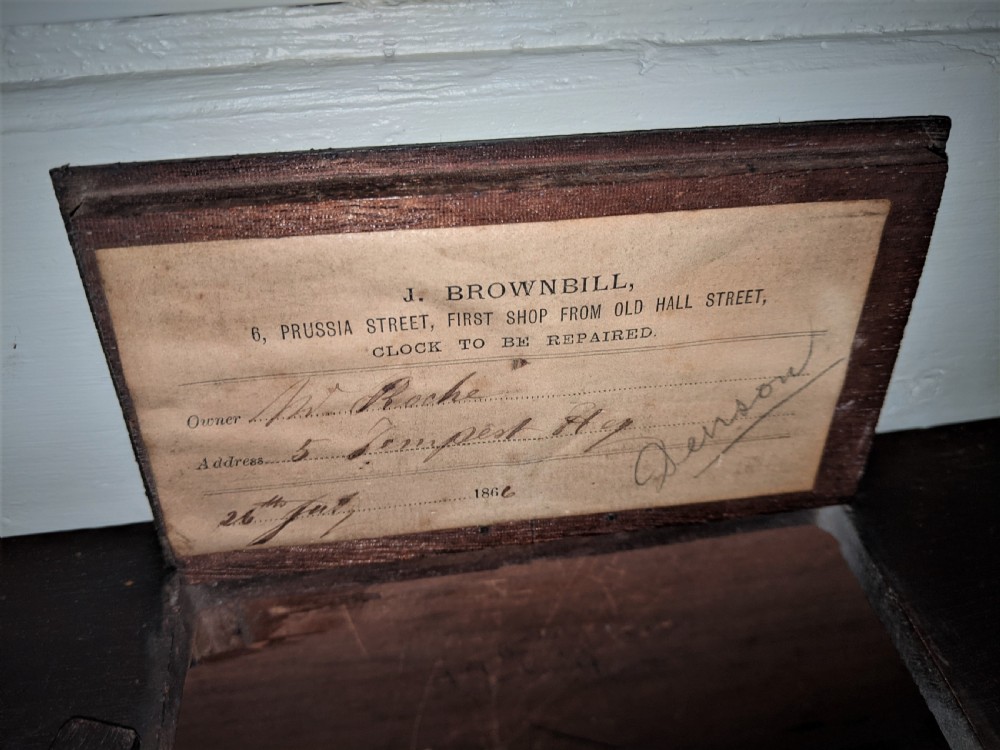 J. BROWNBILL,
6, PRUSSIA STREET, FIRST SHOP FROM OLD HALL STREET,
CLOCK TO BE REPAIRED.
Owner Mr Roche
Address 5 Tempest Hey
26th July 1866
Denson